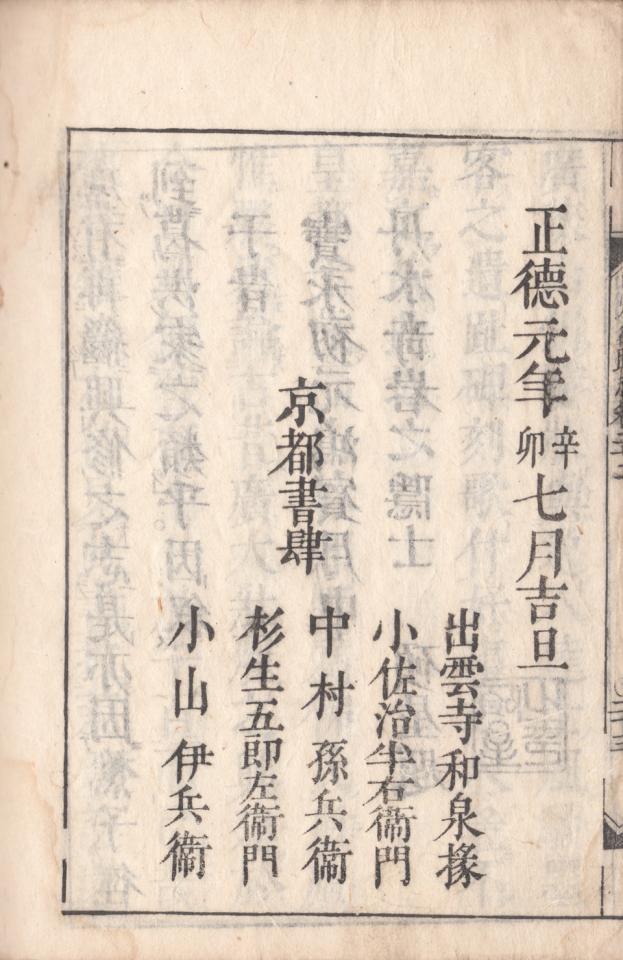 正德元年辛卯七月吉旦
京都書肆
出雲寺和泉掾
小佐治半右衞門
中村孫兵衞
杉生五郎左衞門
小山伊兵衞